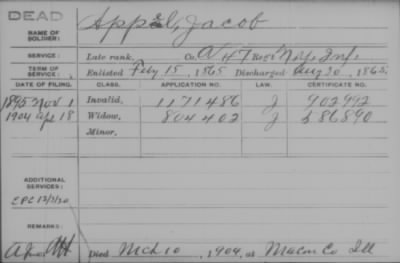 DEAD
NAME OF SOLDIER: Appel, Jacob
SERVICE: Late rank, Co. A 47 Reg't N.Y. Inf.
TERM OF SERVICE: Enlisted Feby 15, 1865 Discharged Aug 30, 1865
DATE OF FILING. CLASS. APPLICATION NO. LAW. CERTIFICATE NO.
1895 Nov 1 Invalid, 1171486 J 902992
1904 Apr 18 Widow, 804402 J 586890
Minor,
ADDITIONAL SERVICES:
CPC 12/3/20
REMARKS:
Died Mch 10, 1904, at Macon Co Ill